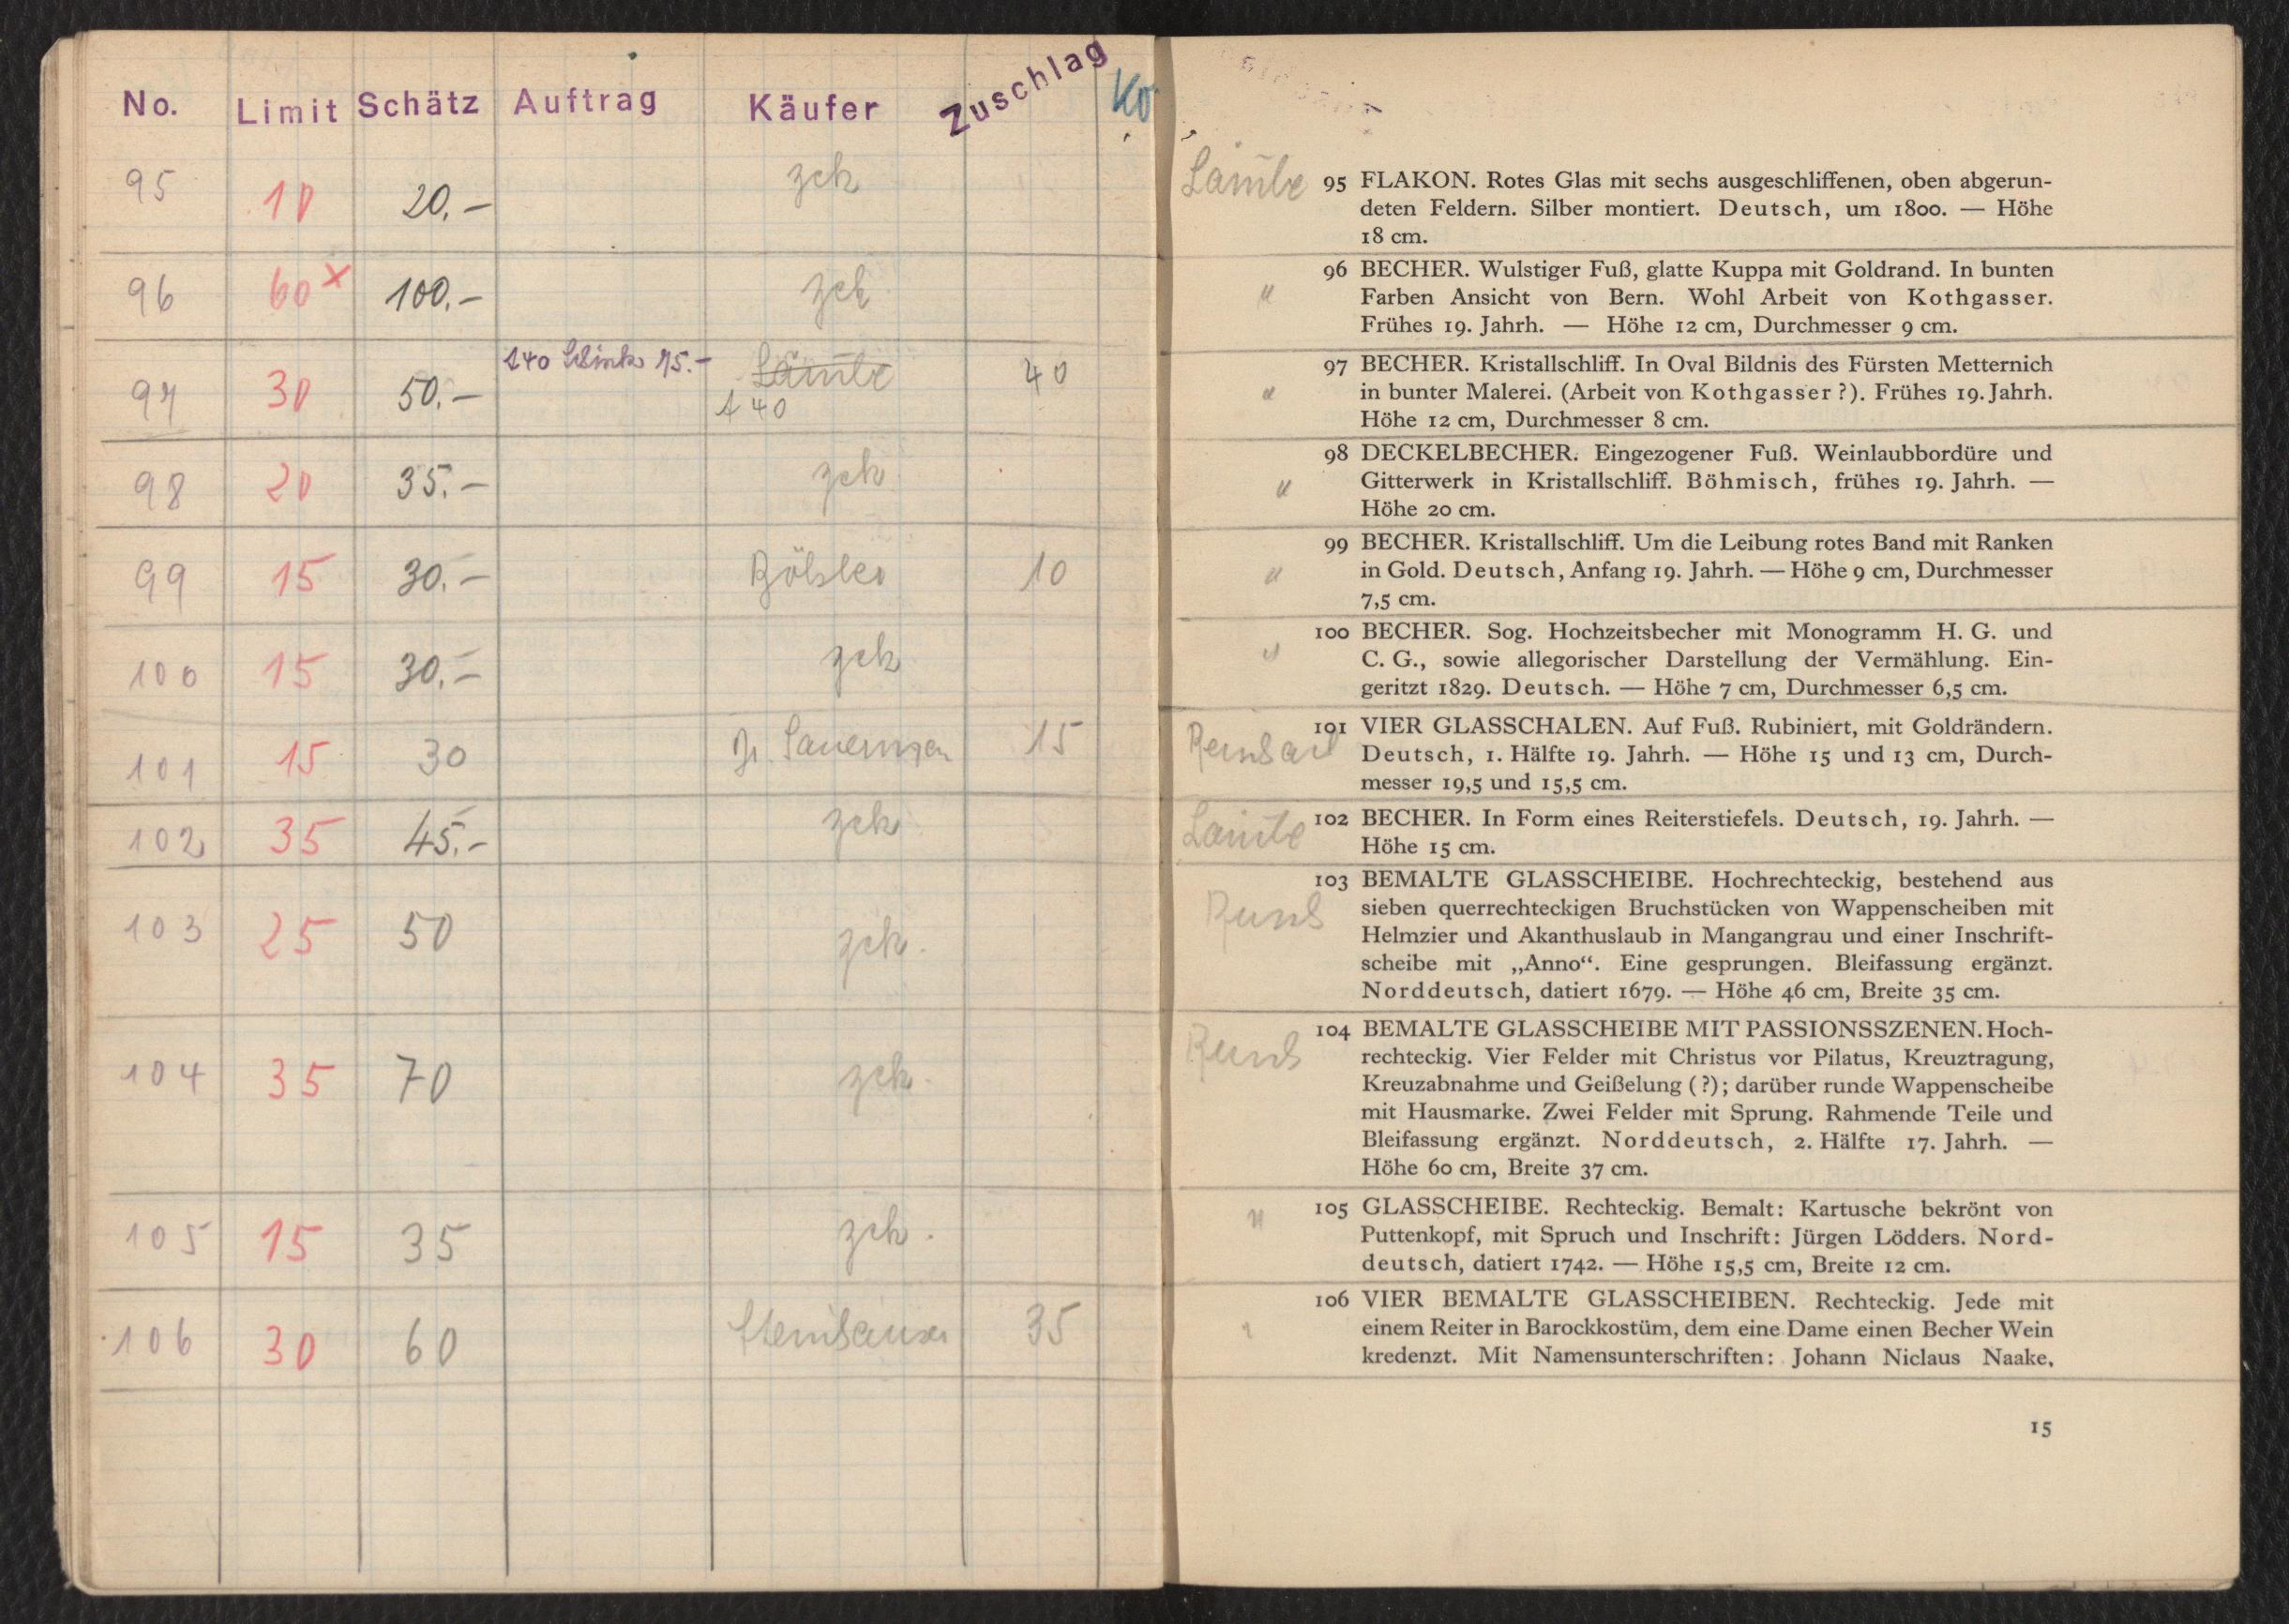 No. Limit Schätz Auftrag Käufer Zuschlag Ko
95 10 20.- zck
96 60 x 100.- zck
97 30 50.- 140 75.- 40
A 40
98 20 35.- zck
99 15 30.- 10
100 15 30.- zck
101 15 30 15
102 35 45.- zck
103 25 50 zck.
104 35 70 zck.
105 15 35 zck.
106 30 60 35
95 FLAKON. Rotes Glas mit sechs ausgeschliffenen, oben abgerun-
deten Feldern. Silber montiert. Deutsch, um 1800. — Höhe
18 cm.
" 96 BECHER. Wulstiger Fuß, glatte Kuppa mit Goldrand. In bunten
Farben Ansicht von Bern. Wohl Arbeit von Kothgasser.
Frühes 19. Jahrh. — Höhe 12 cm, Durchmesser 9 cm.
" 97 BECHER. Kristallschliff. In Oval Bildnis des Fürsten Metternich
in bunter Malerei. (Arbeit von Kothgasser?). Frühes 19. Jahrh.
Höhe 12 cm, Durchmesser 8 cm.
" 98 DECKELBECHER. Eingezogener Fuß. Weinlaubbordüre und
Gitterwerk in Kristallschliff. Böhmisch, frühes 19. Jahrh. —
Höhe 20 cm.
" 99 BECHER. Kristallschliff. Um die Leibung rotes Band mit Ranken
in Gold. Deutsch, Anfang 19. Jahrh. — Höhe 9 cm, Durchmesser
7,5 cm.
" 100 BECHER. Sog. Hochzeitsbecher mit Monogramm H. G. und
C. G., sowie allegorischer Darstellung der Vermählung. Ein-
geritzt 1829. Deutsch. — Höhe 7 cm, Durchmesser 6,5 cm.
101 VIER GLASSCHALEN. Auf Fuß. Rubiniert, mit Goldrändern.
Deutsch, 1. Hälfte 19. Jahrh. — Höhe 15 und 13 cm, Durch-
messer 19,5 und 15,5 cm.
102 BECHER. In Form eines Reiterstiefels. Deutsch, 19. Jahrh. —
Höhe 15 cm.
103 BEMALTE GLASSCHEIBE. Hochrechteckig, bestehend aus
sieben querrechteckigen Bruchstücken von Wappenscheiben mit
Helmzier und Akanthuslaub in Mangangrau und einer Inschrift-
scheibe mit „Anno“. Eine gesprungen. Bleifassung ergänzt.
Norddeutsch, datiert 1679. — Höhe 46 cm, Breite 35 cm.
104 BEMALTE GLASSCHEIBE MIT PASSIONSSZENEN. Hoch-
rechteckig. Vier Felder mit Christus vor Pilatus, Kreuztragung,
Kreuzabnahme und Geißelung (?); darüber runde Wappenscheibe
mit Hausmarke. Zwei Felder mit Sprung. Rahmende Teile und
Bleifassung ergänzt. Norddeutsch, 2. Hälfte 17. Jahrh. —
Höhe 60 cm, Breite 37 cm.
" 105 GLASSCHEIBE. Rechteckig. Bemalt: Kartusche bekrönt von
Puttenkopf, mit Spruch und Inschrift: Jürgen Lödders. Nord-
deutsch, datiert 1742. — Höhe 15,5 cm, Breite 12 cm.
" 106 VIER BEMALTE GLASSCHEIBEN. Rechteckig. Jede mit
einem Reiter in Barockkostüm, dem eine Dame einen Becher Wein
kredenzt. Mit Namensunterschriften: Johann Niclaus Naake,
15